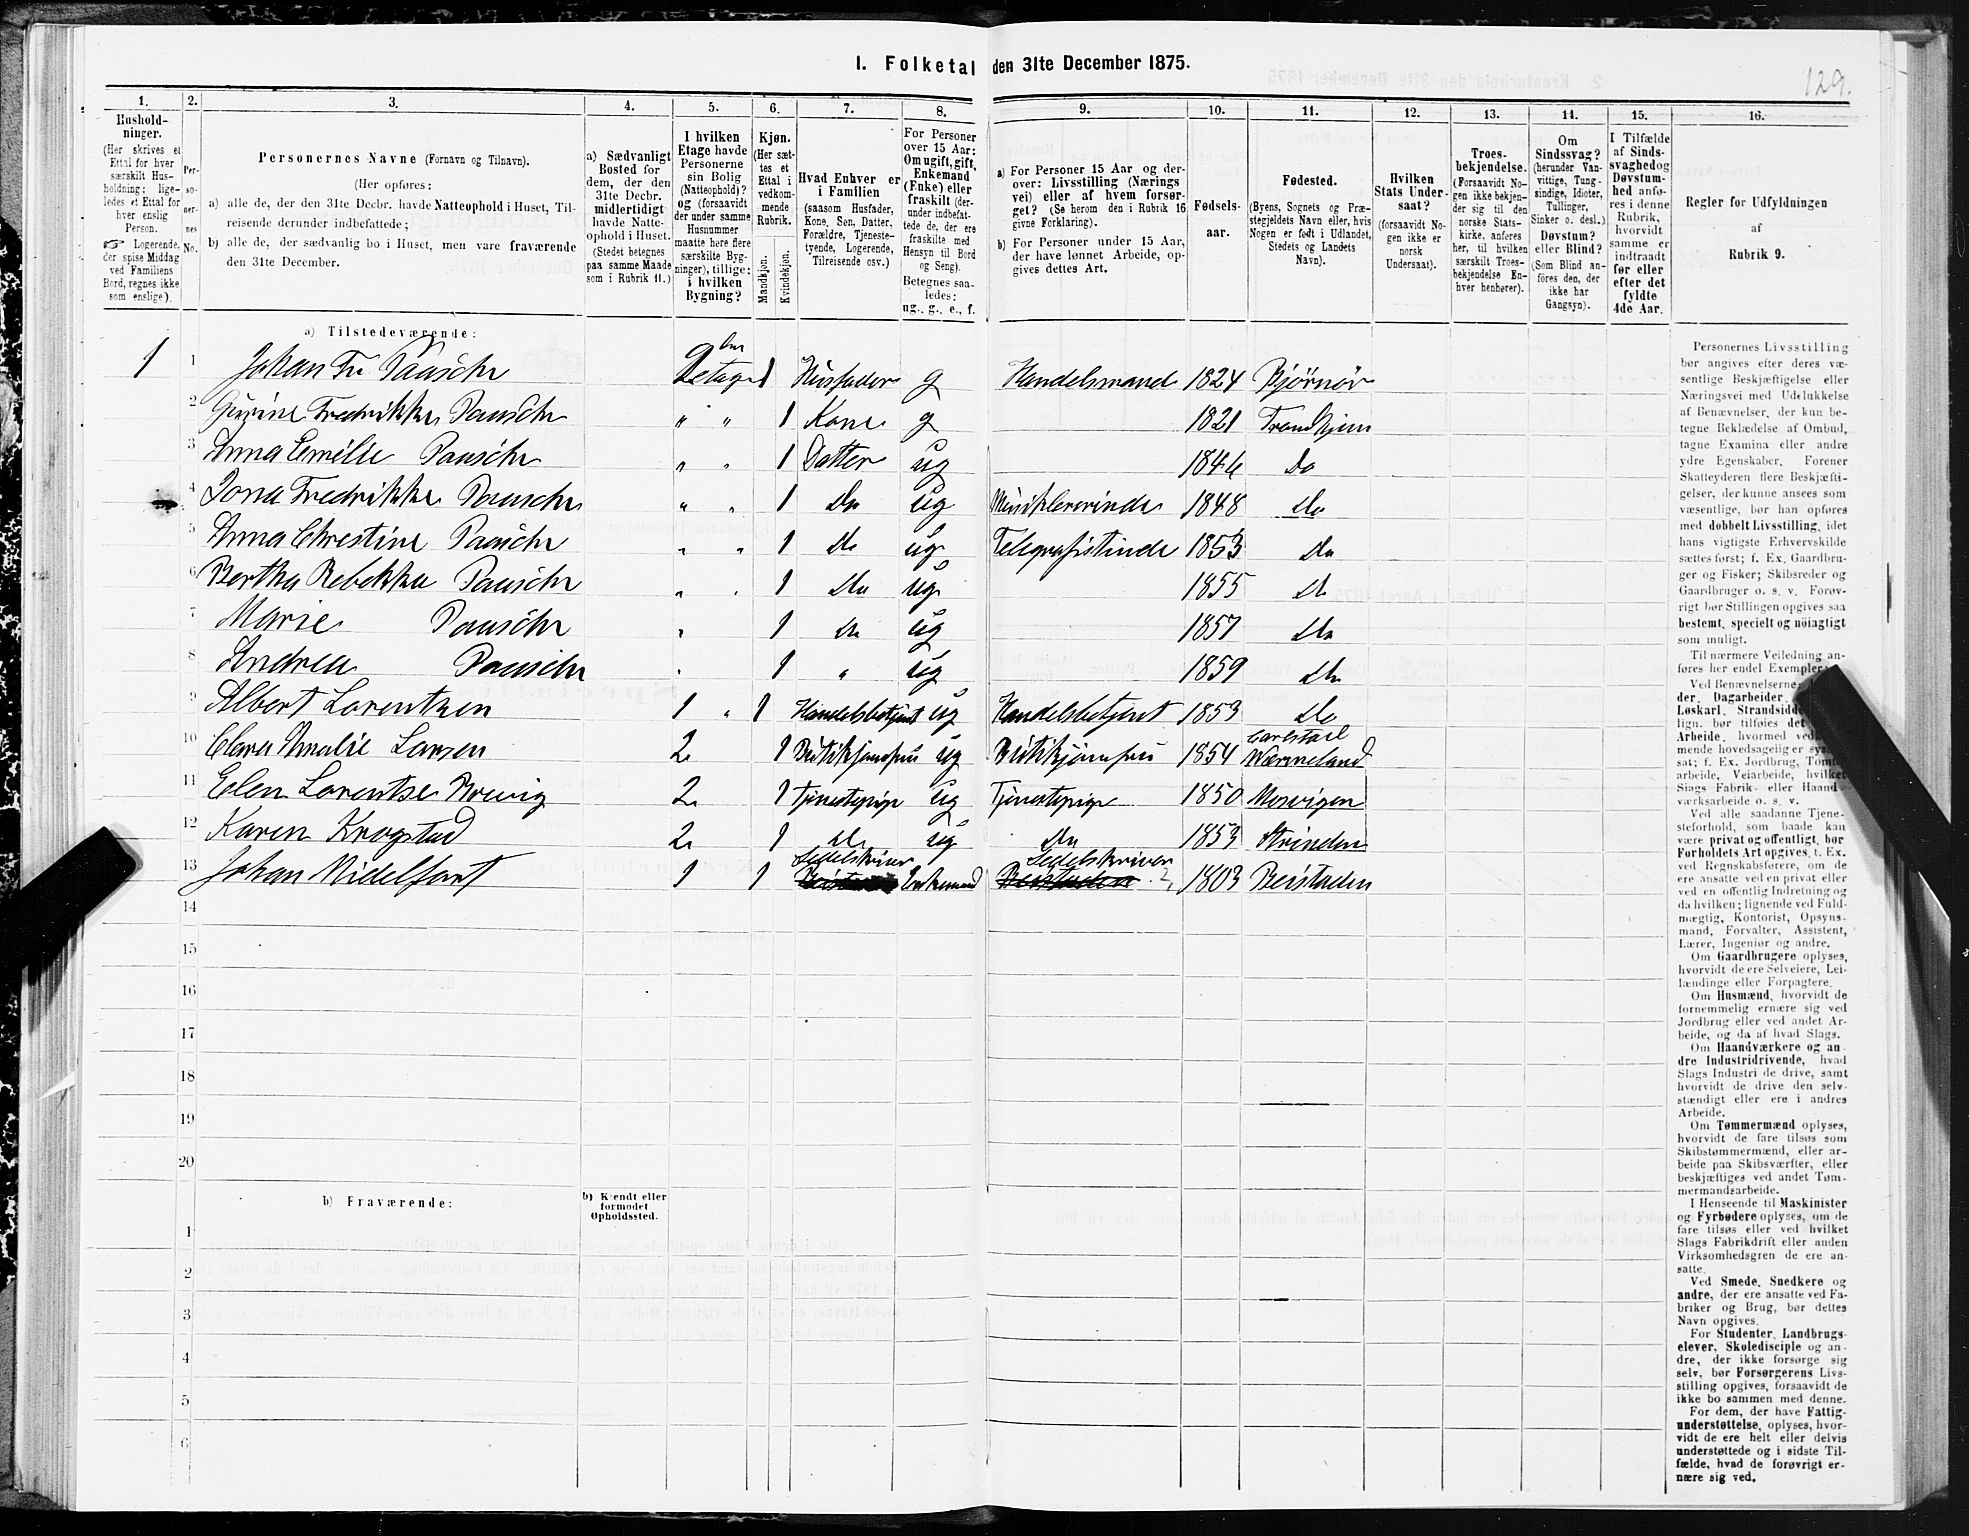 I. Folketal den 31te December 1875.
129.
1. 2. 3. 4. 5. 6. 7. 8. 9. 10. 11. 12. 13. 14. 15. 16.
Hushold-
ninger.
(Her skrives et
Ettal for hver
særskilt Hus-
holdning; lige-
ledes et Ettal for
hver enslig
Person.
☞ Logerende,
der spise Middag
ved Familiens
Bord, regnes ikke
som enslige).
Per-
so-
ner-
nes
No.
Personernes Navne (Fornavn og Tilnavn).
(Her opføres:
a) alle de, der den 31te Decbr. havde Natteophold i Huset, Til-
reisende derunder indbefattede;
b) alle de, der sædvanlig bo i Huset, men vare fraværende
den 31te December.
a) Sædvanligt
Bosted for
dem, der den
31te Decbr.
midlertidigt
havde Natte-
ophold i Huset.
(Stedet betegnes
paa samme Maade
som i Rubrik 11.)
I hvilken
Etage havde
Personerne
sin Bolig
(Natteophold)?
og (forsaavidt
der under samme
Husnummer
maatte høre flere
særskilte Byg-
ninger), tillige:
i hvilken
Bygning?
Kjøn.
(Her sæt-
tes et
Ettal i
vedkom-
mende
Rubrik.
Mandkjøn.
Kvindekjøn.
Hvad Enhver er
i Familien
(saasom Husfader,
Kone, Søn, Datter,
Forældre, Tjeneste-
tyende, Logerende,
Tilreisende osv.)
For Personer
over 15 Aar:
Om ugift, gift,
Enkemand
(Enke) eller
fraskilt (der-
under indbefat-
tede de, der ere
fraskilte med
Hensyn til Bord
og Seng).
Betegnes saa-
ledes:
ug., g., e., f.
a) For Personer 15 Aar og der-
over: Livsstilling (Nærings
vei) eller af hvem forsør-
get? (Se herom den i Rubrik 16
givne Forklaring).
b) For Personer under 15 Aar,
der have lønnet Arbeide, op-
gives dettes Art.
Fødsels-
aar.
Fødested.
(Byens, Sognets og Præ-
stegjeldets Navn eller, hvis
Nogen er født i Udlandet,
Stedets og Landets
Navn).
Hvilken
Stats Under-
saat?
(forsaavidt No-
gen ikke er
norsk
Undersaat).
Troes-
bekjendelse.
(Forsaavidt No-
gen ikke bekjen-
der sig til den
norske Stats-
kirke, anføres
her, til hvilken
særskilt Troes-
bekjendelse En-
hver henhører).
Om
Sindssvag?
(herunder Van-
vittige, Tung-
sindige, Idioter,
Tullinger,
Sinker o. desl.)
Døvstum?
eller Blind?
(Som Blind an-
føres den, der
ikke har
Gangsyn).
I Tilfælde
af Sinds-
svaghed og
Døvstum-
hed anfø-
res i denne
Rubrik,
hvorvidt
samme er
indtraadt
før eller
efter det
fyldte
4de Aar.
Regler for Udfyldningen
af
Rubrik 9.
a) Tilstedeværende:
1 1 Johan Fr Paasche Etage 1 Husfader g Handelsmand 1824 Bjørnør
2 Gurine Fredrikke Paasche " " 1 Kone g 1821 Trondhjem
3 Anna Emilie Paasche " " 1 Datter ug 1846 Do
4 Fredrikke Paasche " " 1 Do ug Musiklererinde 1848 Do
5 Anna Christine Paasche " " 1 Do ug Telegrafistinde 1853 Do
6 Bertha Rebekka Paasche " " 1 Do ug 1855 Do
7 Marie Paasche " 1 Do ug 1857 Do
8 Andrea Paasche " 1 " ug 1859 Do
9 Albert Lorentzen 1 " 1 Handelsbetjent ug Handelsbetjent 1853 Do
Carlstad
10 Clara Amalie Larsen 2 1 Butikjomfru ug Butikjomfru 1854 Wærmeland
11 Elen Lorentse Brevig 2 1 Tjenestepige ug Tjenestepige 1850 Mosvigen
12 Karen Krogstad 2 1 Do ug Do 1853 Strinden
Sedelskriver Sedelskriver
13 Johan Midelfart 1 1 Enkemand Beistaden 1803 Beistaden
14
15
16
17
18
19
20
b) Fraværende:
b) Kjendt eller
formodet
Opholdssted.
1
2
3
4
5
6
Personernes Livsstilling
bør angives efter deres væ-
sentlige Beskjæftigelse eller
Næringsvei med Udelukkelse
af Benævnelser, der kun be-
tegne Beklædelse af Ombud,
tagne Examina eller andre
ydre Egenskaber. Forener
Skatteyderen flere Beskjæfti-
gelser, der kunne ansees som
væsentlige, bør han opføres
med dobbelt Livsstilling, idet
hans vigtigste Erhvervskilde
sættes først; f. Ex. Gaardbru-
ger og Fisker; Skibsreder og
Gaardbruger o. s. v. Forøv-
rigt bør Stillingen opgives saa
bestemt, specielt og nöiagtigt
som muligt.
Til nærmere Veiledning an-
føres her endel Exempler:
Ved Benævnelserne:
der, Dagarbeider,
Løskarl, Strandsidder
lign. bør tilføies det
Arbeide, hvormed ved
mende hovedsagelig er
sat; f. Ex. Jordbrug,
arbeide, Veiarbeide, hvilket
Slags Fabrik- eller Haand-
værksarbeide o. s. v.
Ved alle saadanne Tjene-
steforhold, som baade kan
være privat og offentligt, bør
Forholdets Art opgives, t. Ex.
ved Regnskabsførere, om de
ere ansatte ved en privat eller
ved en offentlig Indretning og
da hvilken; lignende ved Fuld-
mægtig, Kontorist, Opsyns-
mand, Forvalter, Assistent,
Lærer, Ingeniør og andre.
Om Gaardbrugere oplyses,
hvorvidt de ere Selveiere, Lei-
lændinge eller Forpagtere.
Om Husmænd, hvorvidt de
fornemmelig ernære sig ved
Jordbrug eller ved andet Ar-
beide, og da af hvad Slags.
Om Haandværkere og an-
dre Industridrivende, hvad
Slags Industri de drive, samt
hvorvidt de drive den selv-
stændigt eller ere i andres
Arbeide.
Om Tømmermænd oplyses,
hvorvidt de fare tilsøs som
Skibstømmermænd, eller ar-
beide paa Skibsværfter, eller
beskjæftiges ved andet Tøm-
mermandsarbeide.
I Henseende til Maskinister
og Fyrbødere oplyses, om de
fare tilsøs eller ved hvilket
Slags Fabrikdrift eller anden
Virksomhedsgren de ere an-
satte.
Ved Smede, Snedkere og
andre, der ere ansatte ved Fa-
briker og Brug, bør dettes
Navn opgives.
For Studenter, Landbrugs-
elever, Skoledisciple og an-
dre, der ikke forsørge sig
selv, bør Forsørgerens Livs-
stilling opgives, forsaavidt de
ikke bo sammen med denne.
For dem, der have Fattig-
understøttelse, oplyses, hvor-
vidt de ere helt eller delvis
understøttede og i sidste Til-
fælde, hvad de forøvrigt er-
nære sig ved.